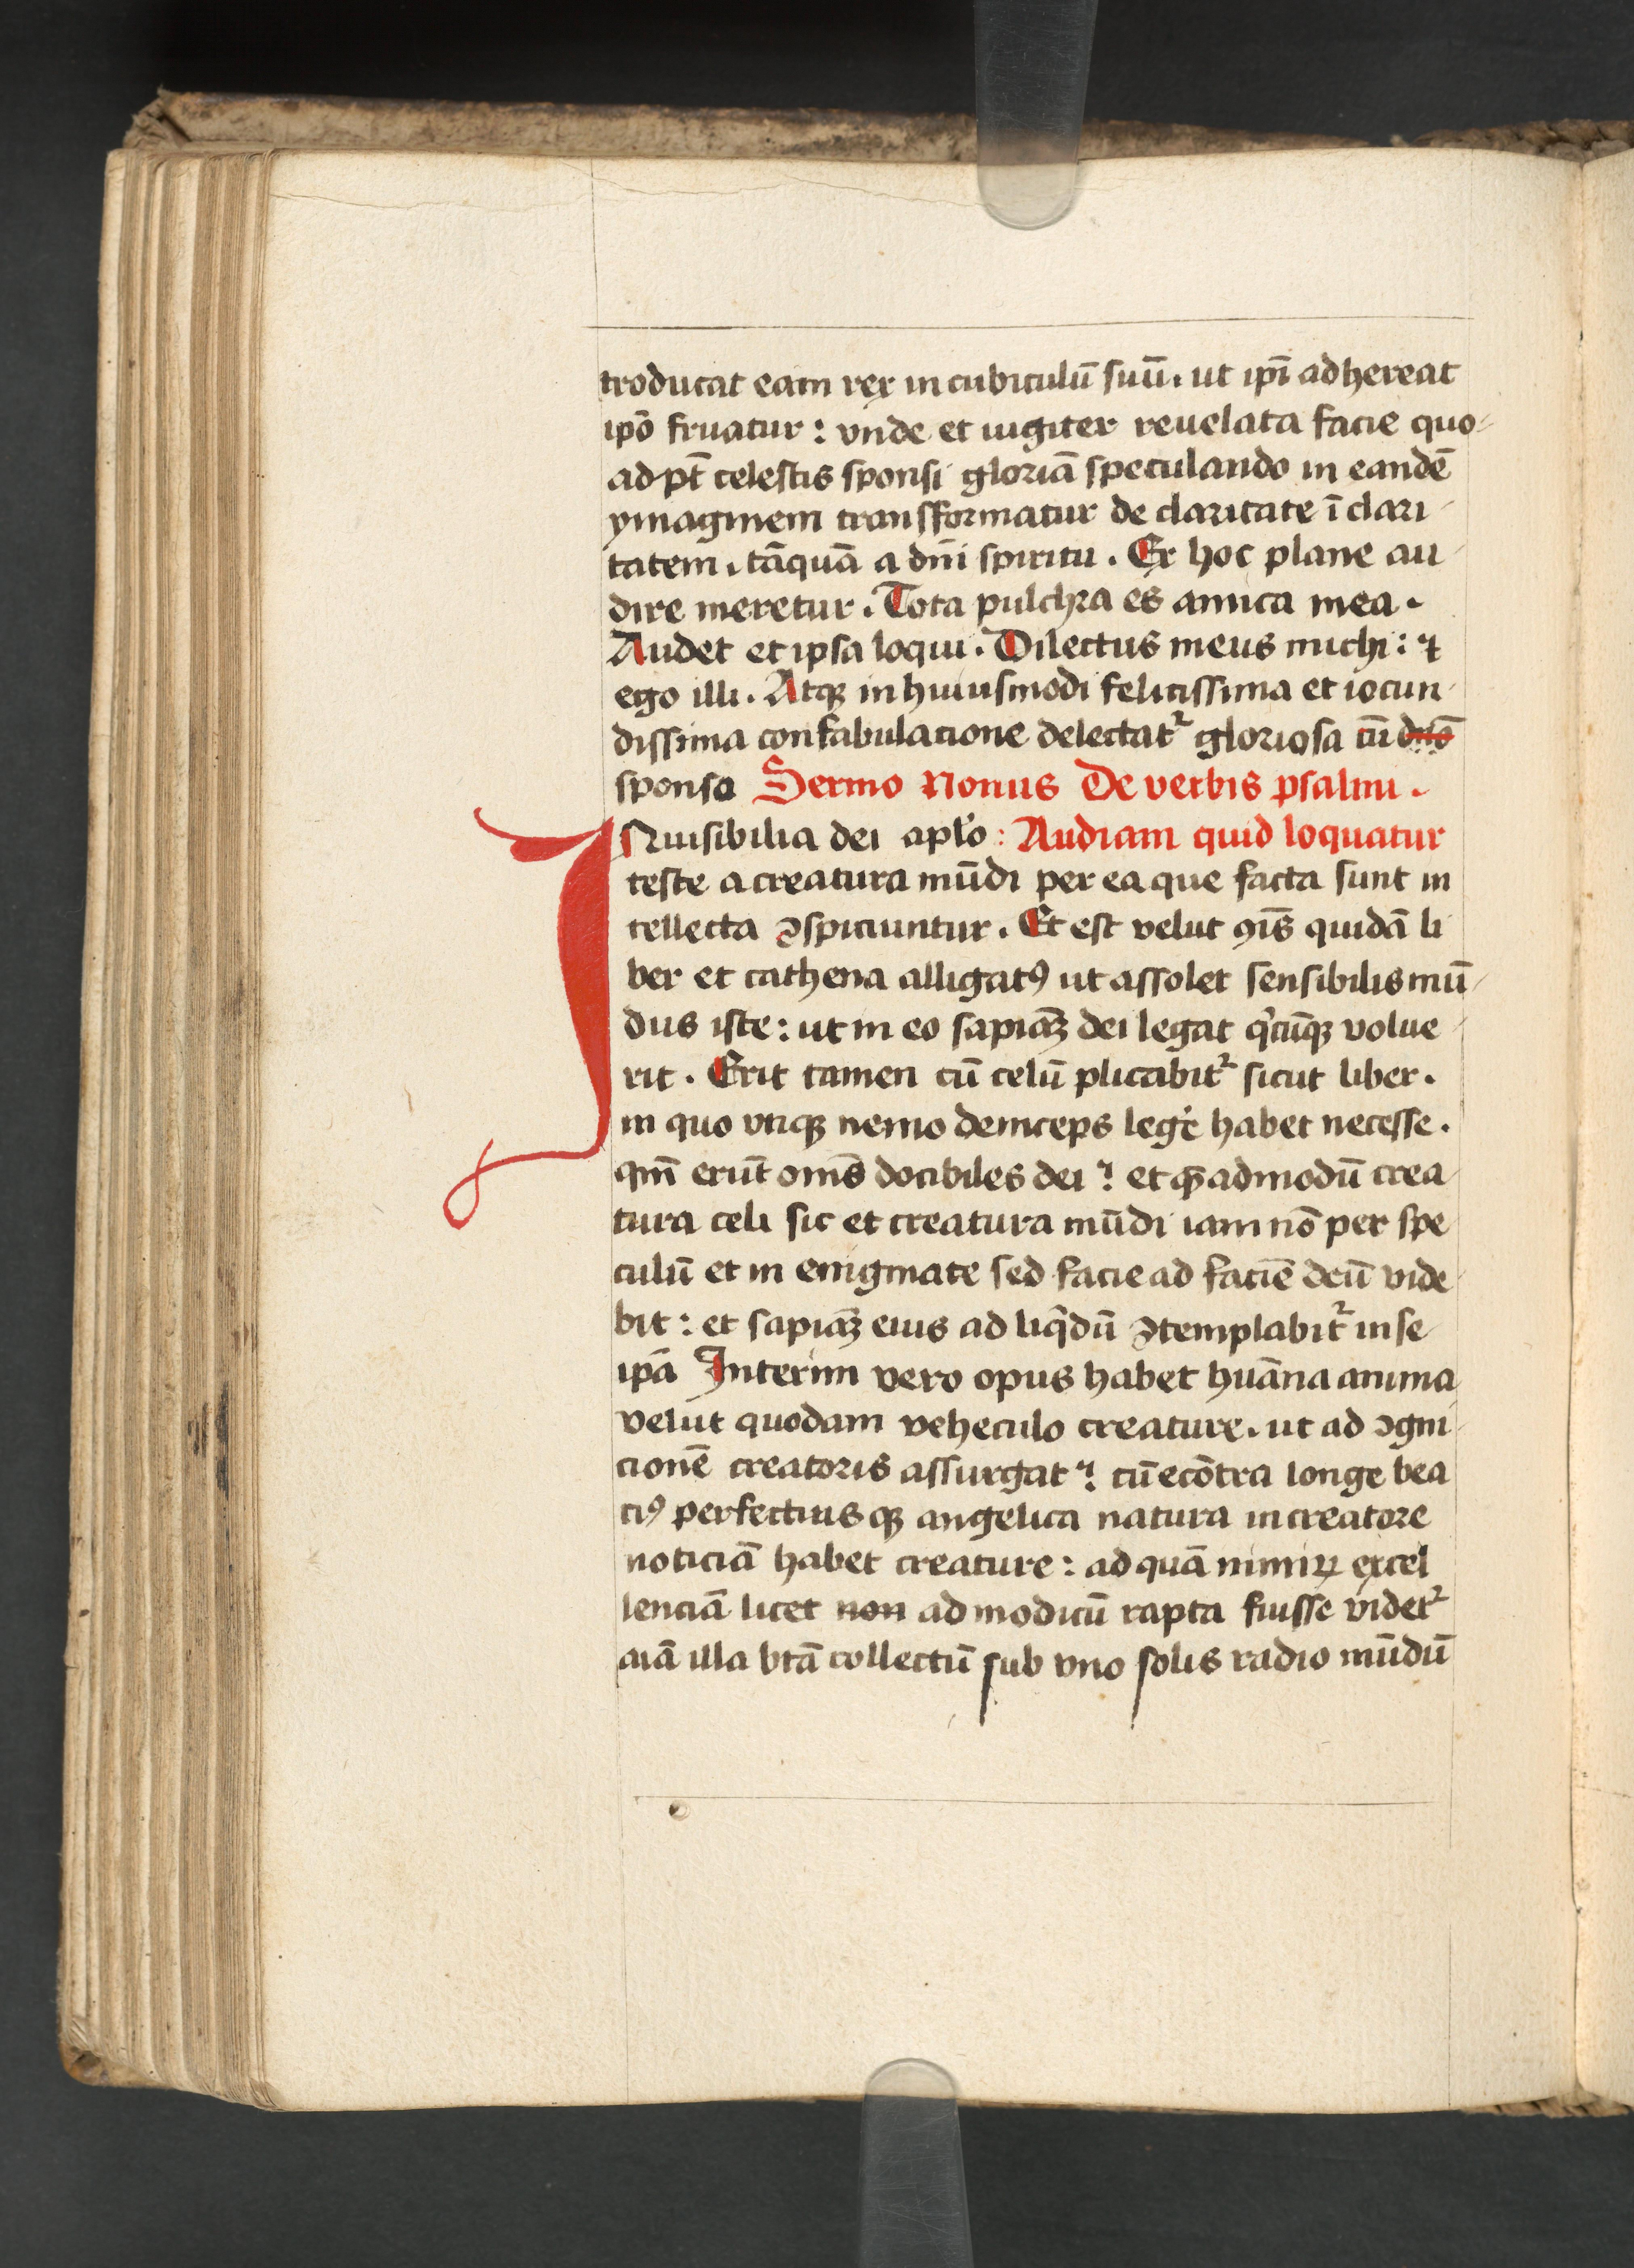 troducat eam rex in cubiculū suū. ut ipī adhereat
ipō fruatur: vnde et iugiter reuelata facie quo-
ad pt̄ celestis sponsi gloriā speculando in eandē
ymaginem transformatur de claritate ī clari-
tatem. tāquā a dn̄i spiritu. Ex hoc plane au-
dire meretur. Tota pulchra es amica mea.
Audet et ipsa loqui. Dilectus meus michi: ⁊
ego illi. Atqꝫ in huiusmodi felicissima et iocun-
dissima confabulacione delectatᷣ gloriosa cū
sponso Sermo Nonus De verbis psalmi.
INuisibilia dei aplo: Audiam quid loquatur
teste a creatura mūdi per ea que facta sunt in
tellecta ꝯspiciuntur. Et est velut ꝯīs quidā li
ber et cathena alligatꝰ ut assolet sensibilis mū-
dus iste: ut in eo sapiāꝫ dei legat qͥcūqꝫ volue-
rit. Erit tamen cū celū plicabitᷣ sicut liber.
in quo vtiqꝫ nemo deinceps leg̓e habet necesse.
qm̄ erūt om̄s docibiles dei: et qꝫadmodū crea-
tura celi sic et creatura mūdi iam nō per spe
culū et in enigmate sed facie ad faciē deū vide-
bit: et sapiāꝫ eius ad liqͥdū ꝯtemplabitᷣ in se
ipā Interim vero opus habet huāna anima
velut quodam veheculo creature. ut ad ꝯgni-
cionē creatoris assurgat: cū ecōtra longe bea
ciꝰ perfectiusqꝫ angelica natura in creatore
noticiā habet creature: ad quā nimiꝝ excel
lenciā licet non ad modicū rapta fuisse videtᷣ
aīā illa btā collectū sub vno solis radio mūdū